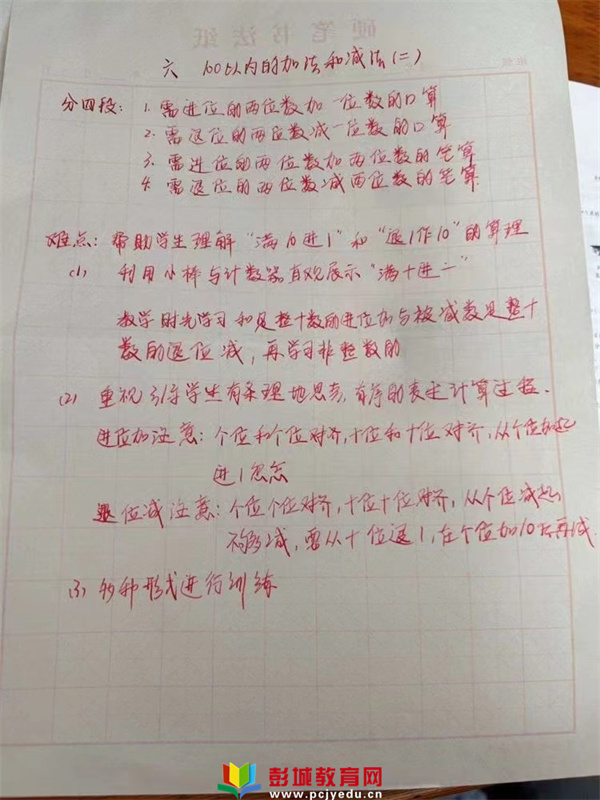 硬笔书法纸
六 100以内的加法和减法(二)
分四段: 1. 需进位的两位数加一位数的口算
2. 需退位的两位数减一位数的口算
3. 需进位的两位数加两位数的笔算
4. 需退位的两位数减两位数的笔算
难点: 帮助学生理解“满10进1”和“退1作10”的算理
(1) 利用小棒与计数器直观展示“满十进一”
教学时先学习和是整十数的进位加与被减数是整十
数的退位减, 再学习非整数的
(2) 重视引导学生有条理地思考, 有序的表述计算过程.
进位加注意: 个位和个位对齐, 十位和十位对齐, 从个位加起
进1忽忘
退位减注意: 个位个位对齐, 十位十位对齐, 从个位减起
不够减, 需从十位退1, 在个位加10后再减.
(3) 多种形式进行训练
彭城教育网
www.pcjyedu.cn